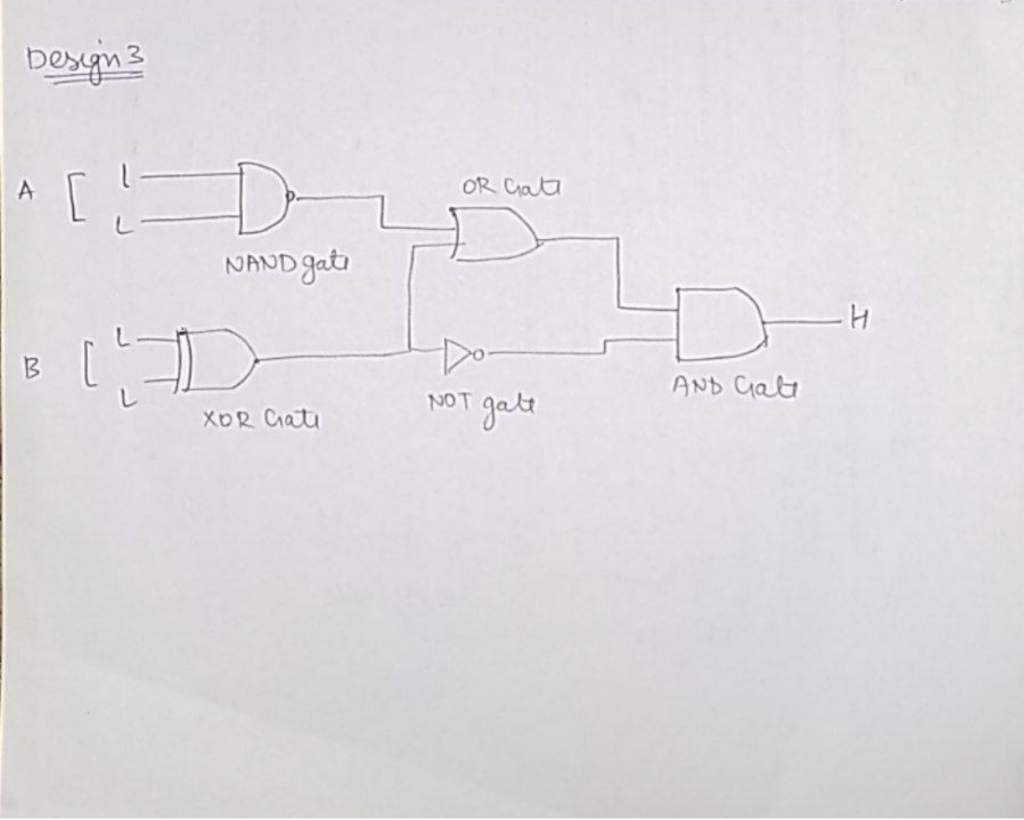 Design 3
A [ L
L
OR Gate
NAND gate
H
B [ L
L
XOR Gate
NOT gate
AND Gate